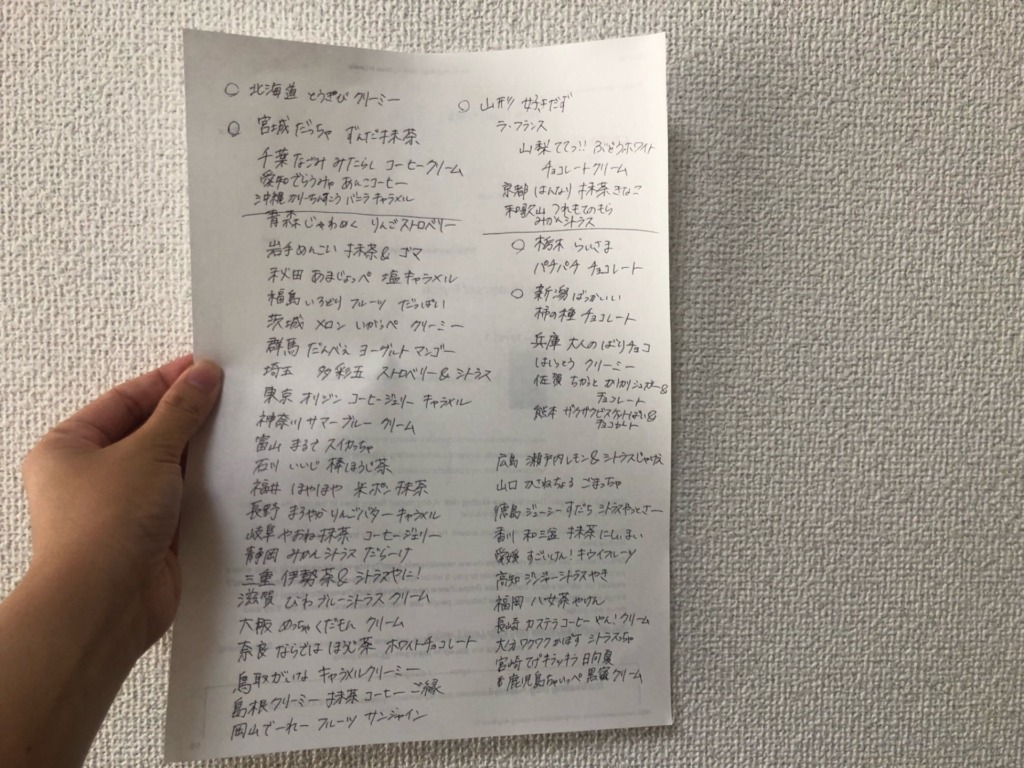 ○ 北海道 とうきび クリーミー
○ 宮城 だっちゃ ずんだ抹茶
千葉 なごみ みたらし コーヒークリーム
愛知 でらうみゃ あんこコーヒー
沖縄 かりーちんすこう バニラ キャラメル
青森 じゃわめく りんごストロベリー
岩手 めんこい 抹茶& ゴマ
秋田 あまじょっぺ 塩キャラメル
福島 いろどり フルーツ だっぱい
茨城 メロン いがっぺ クリーミー
群馬 だんべえ ヨーグルト マンゴー
埼玉 多彩玉 ストロベリー& シトラス
東京 オリジン コーヒージェリー キャラメル
神奈川 サマーブルー クリーム
富山 まるで スイカっちゃ
石川 いいじ 棒ほうじ茶
福井 ほやほや 米ポン 抹茶
長野 まろやかりんごバター キャラメル
岐阜 やおね抹茶 コーヒージェリー
静岡 みかんシトラス だらーけ
三重 伊勢茶& シトラスやに!
滋賀 びわブルーシトラス クリーム
大阪 めっちゃくだもん クリーム
奈良 ならでは ほうじ茶 ホワイトチョコレート
鳥取 がいな キャラメルクリーミー
島根 クリーミー 抹茶 コーヒー ご縁
岡山 でーれー フルーツ サンシャイン
○ 山形 んだず
ラ・フランス
山梨 ててっ!! ぶどうホワイト
チョコレートクリーム
京都 はんなり 抹茶 きなこ
和歌山 つれもてのもら
みかんシトラス
○ 栃木 らいさま
パチパチ チョコレート
○ 新潟 ばっかいい
柿の種 チョコレート
兵庫 大人の ばりチョコ
はいっとう クリーミー
佐賀 ちかっと &
チョコレート
熊本 ザクザクビスケットばい&
チョコレート
広島 瀬戸内レモン& シトラスじゃけえ
山口 かさねちょる ごまっちゃ
徳島 ジューシーすだち シトラスやっとさー
香川 和三盆 抹茶 にしまい
愛媛 すごいけん! キウイフルーツ
高知 ジンジャーシトラスやき
福岡 八女茶 やけん
長崎 カステラコーヒー やん! クリーム
大分 ワクワクかぼす シトラスっちゃ
宮崎 てげキラッキラ 日向夏
鹿児島 ちゃいっぺ 黒蜜クリーム